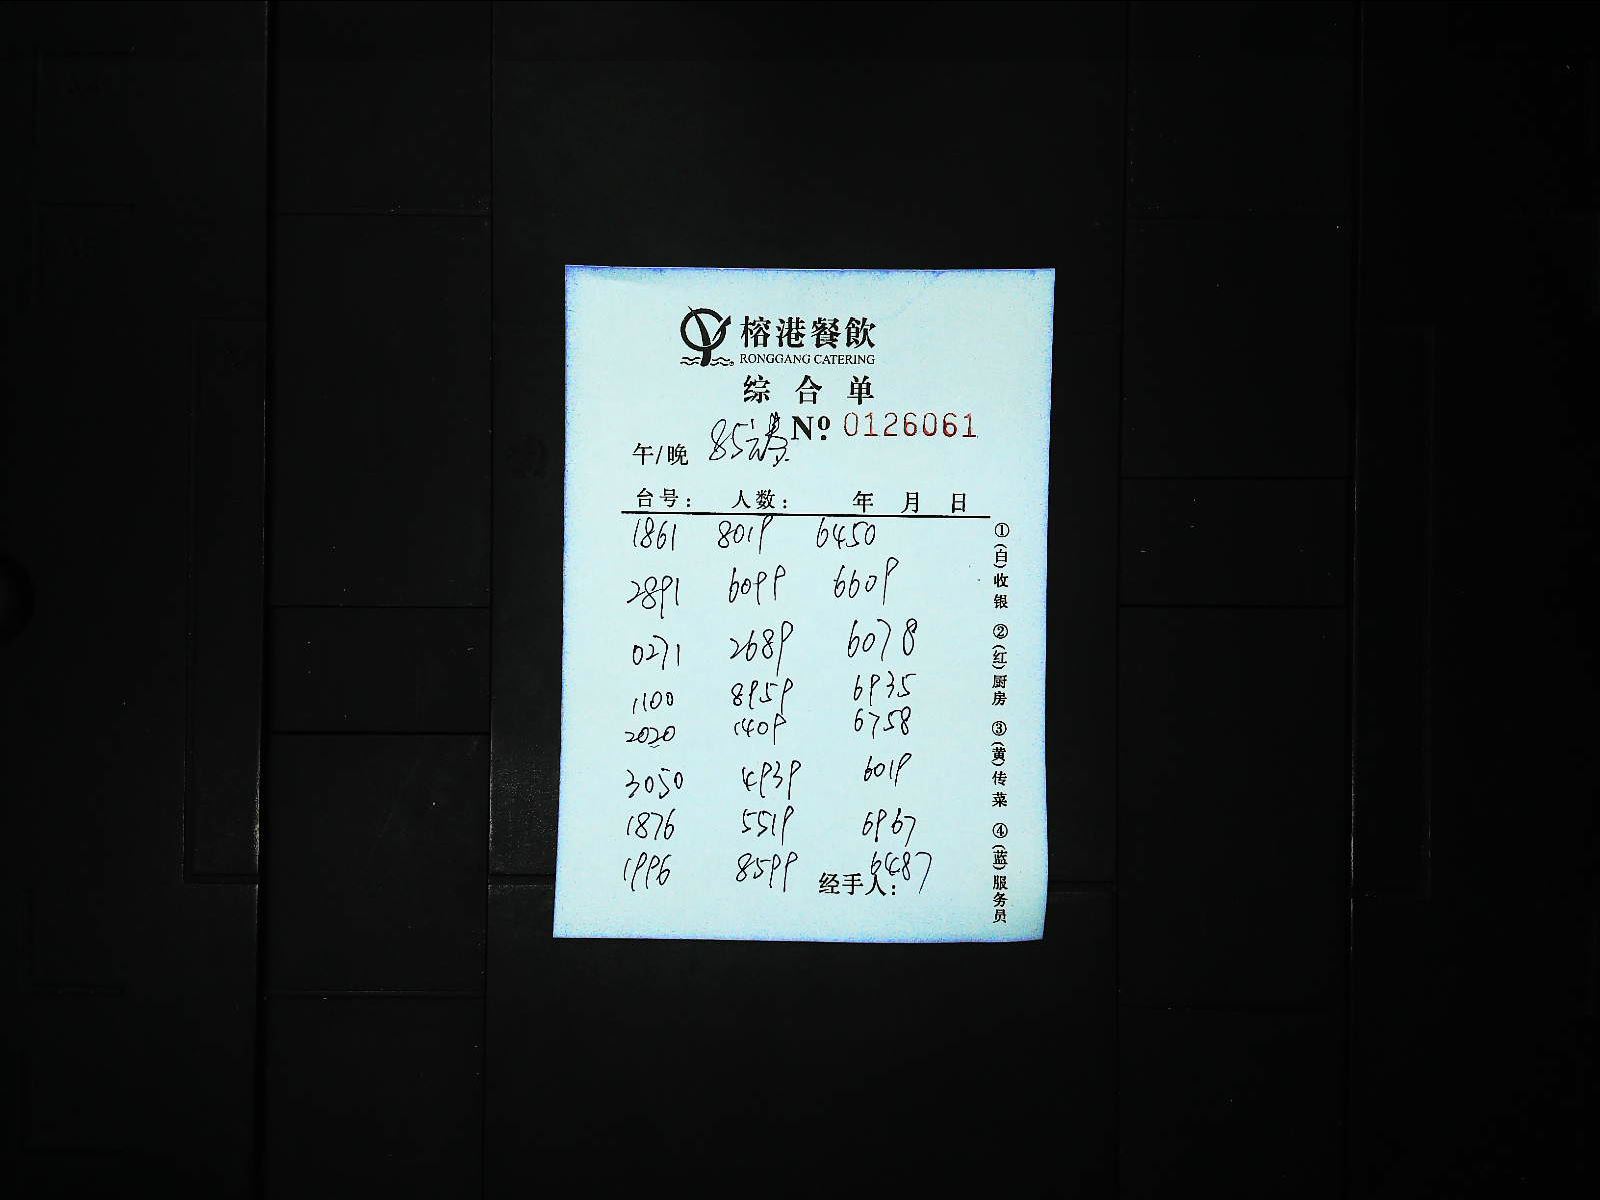 榕港餐飲
RONGGANG CATERING
综合单
No 0126061
午/晚 85
台号: 人数: 年 月 日
1861 8019 6450
2891 6099 6609
0271 2689 6078
1100 8959 6935
2020 1409 6758
3050 4939 6019
1876 5519 6967
1996 8599 6487
经手人:
①(白)收银 ②(红)厨房 ③(黄)传菜 ④(蓝)服务员